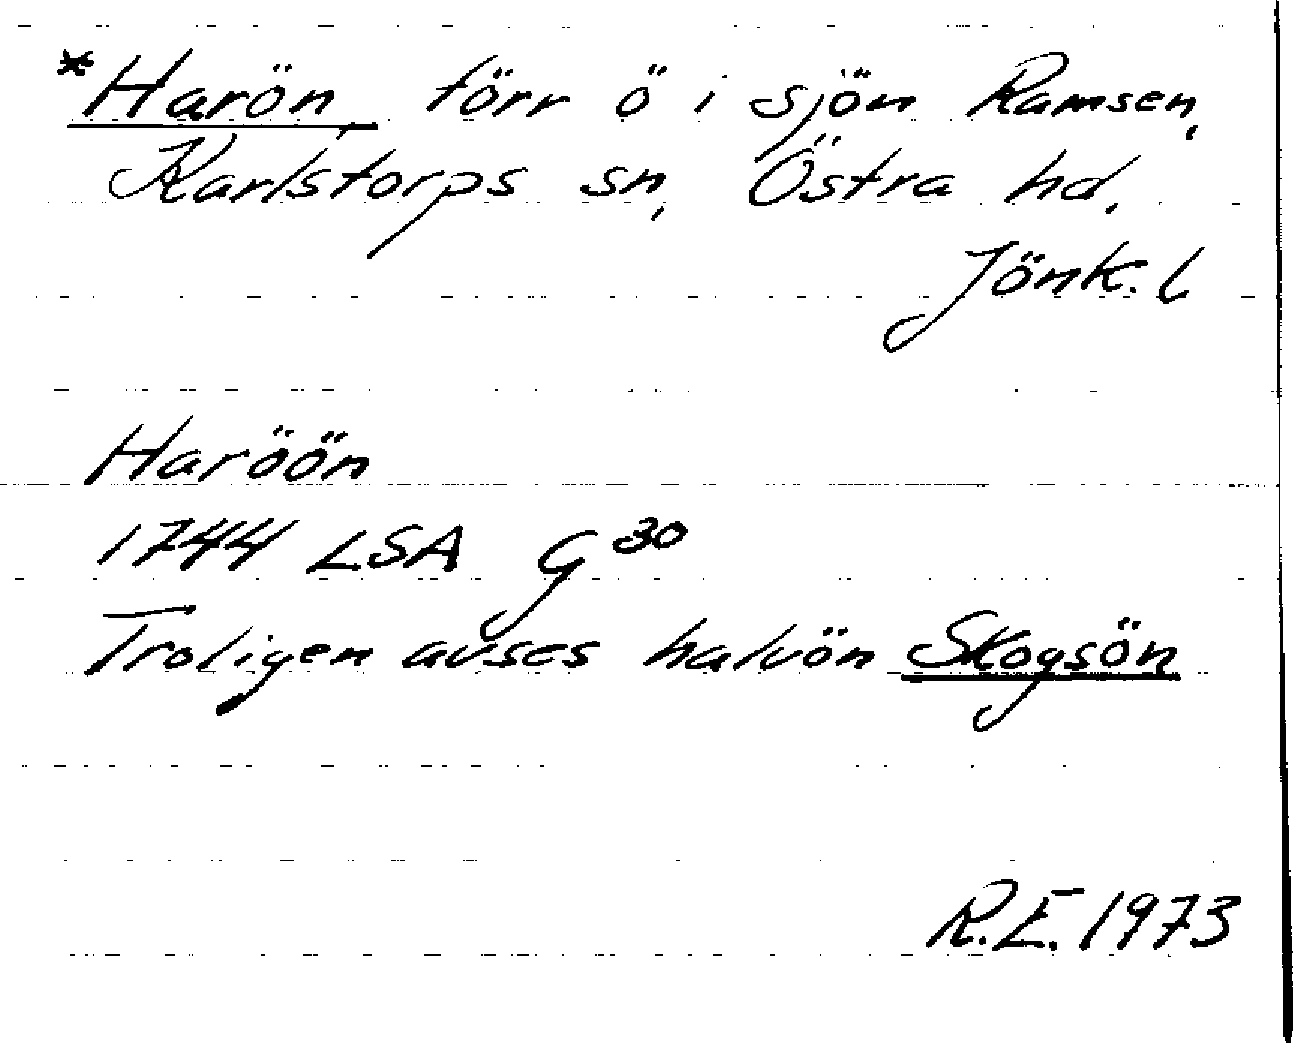 *Harön, förr ö i sjön Ramsen,
Karlstorps sn, Östra hd,
Jönk. l
Haröön
1744 LSA G 30
Troligen avses halvön Skogsön
R.E. 1973